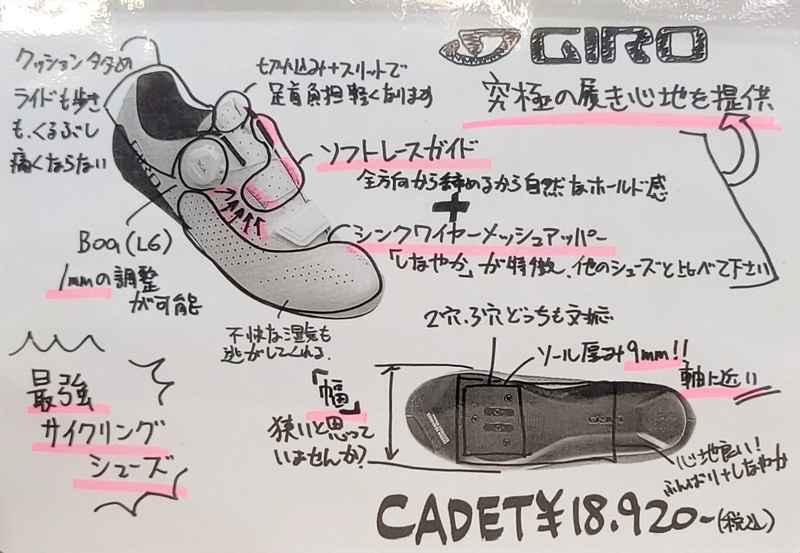 GIRO
究極の履き心地を提供
クッション多め
ライドも歩き
も、くるぶし
痛くならない
切れ込み+スリットで
足首負担軽くなります
ソフトレースガイド
全方向から締めるから自然なホールド感
+
シンクワイヤーメッシュアッパー
「しなやか」が特徴、他のシューズと比べて下さい
GIRO
Boa (L6)
1mmの調整
が可能
不快な湿気も
逃がしてくれる
最強
サイクリング
シューズ
2穴、3穴どっちも対応
ソール厚み9mm!!
軸に近い
「幅」
狭いと思って
いませんか?
心地良い!
ふんばり+しなやか
CADET¥18.920-(税込)